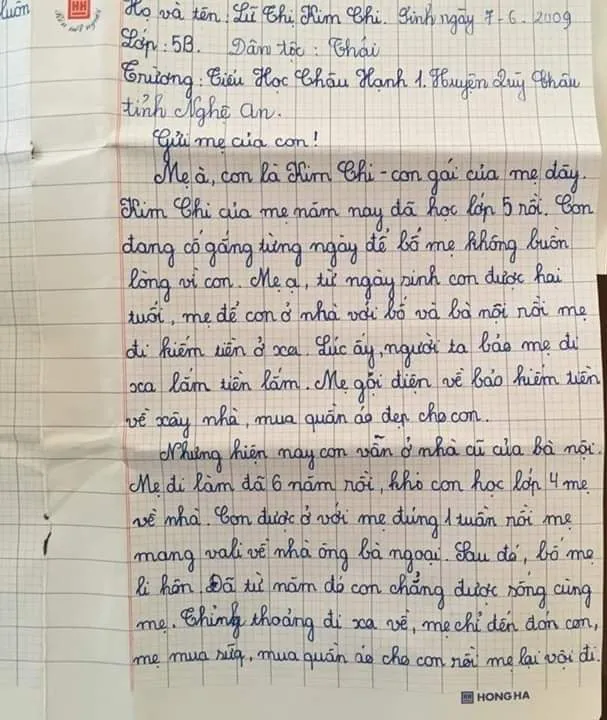 luôn
HH
Họ và tên: Lữ Thị Kim Chi. Sinh ngày 7-6-2009
Lớp: 5B. Dân tộc: Thái
Trường: Tiểu Học Châu Hạnh 1. Huyện Quỳ Châu
tỉnh Nghệ An.
Gửi mẹ của con!
Mẹ à, con là Kim Chi - con gái của mẹ đây.
Kim Chi của mẹ năm nay đã học lớp 5 rồi. Con
đang cố gắng từng ngày để bố mẹ không buồn
lòng vì con. Mẹ ạ, từ ngày sinh con được hai
tuổi, mẹ để con ở nhà với bố và bà nội rồi mẹ
đi kiếm tiền ở xa. Lúc ấy, người ta bảo mẹ đi
xa lắm tiền lắm. Mẹ gọi điện về bảo kiếm tiền
về xây nhà, mua quần áo đẹp cho con.
Nhưng hiện nay con vẫn ở nhà cũ của bà nội.
Mẹ đi làm đã 6 năm rồi, khi con học lớp 4 mẹ
về nhà. Con được ở với mẹ đúng 1 tuần rồi mẹ
mang vali về nhà ông bà ngoại. Sau đó, bố mẹ
li hôn. Đã từ năm đó con chẳng được sống cùng
mẹ. Thỉnh thoảng đi xa về, mẹ chỉ đến đón con,
mẹ mua sữa, mua quần áo cho con rồi mẹ lại vội đi.
HONG HA